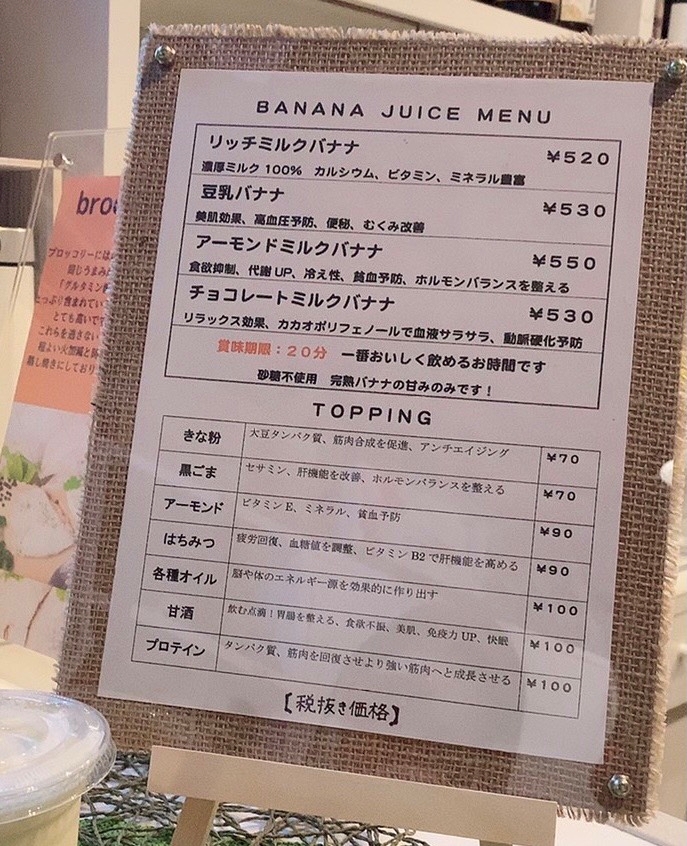 BANANA JUICE MENU
リッチミルクバナナ ¥520
濃厚ミルク100% カルシウム、ビタミン、ミネラル豊富
豆乳バナナ ¥530
美肌効果、高血圧予防、便秘、むくみ改善
アーモンドミルクバナナ ¥550
食欲抑制、代謝UP、冷え性、貧血予防、ホルモンバランスを整える
チョコレートミルクバナナ ¥530
リラックス効果、カカオポリフェノールで血液サラサラ、動脈硬化予防
賞味期限：20分 一番おいしく飲めるお時間です
砂糖不使用 完熟バナナの甘みのみです！
TOPPING
きな粉 大豆タンパク質、筋肉合成を促進、アンチエイジング ¥70
黒ごま セサミン、肝機能を改善、ホルモンバランスを整える ¥70
アーモンド ビタミンE、ミネラル、貧血予防 ¥90
はちみつ 疲労回復、血糖値を調整、ビタミンB2で肝機能を高める ¥90
各種オイル 脳や体のエネルギー源を効果的に作り出す ¥100
甘酒 飲む点滴！胃腸を整える、食欲不振、美肌、免疫力UP、快眠 ¥100
プロテイン タンパク質、筋肉を回復させより強い筋肉へと成長させる ¥100
【税抜き価格】
ブロッコリーには
同じうまみ
「グルタミン
とても高いで
これらを逃さない
蒸し焼きにしており